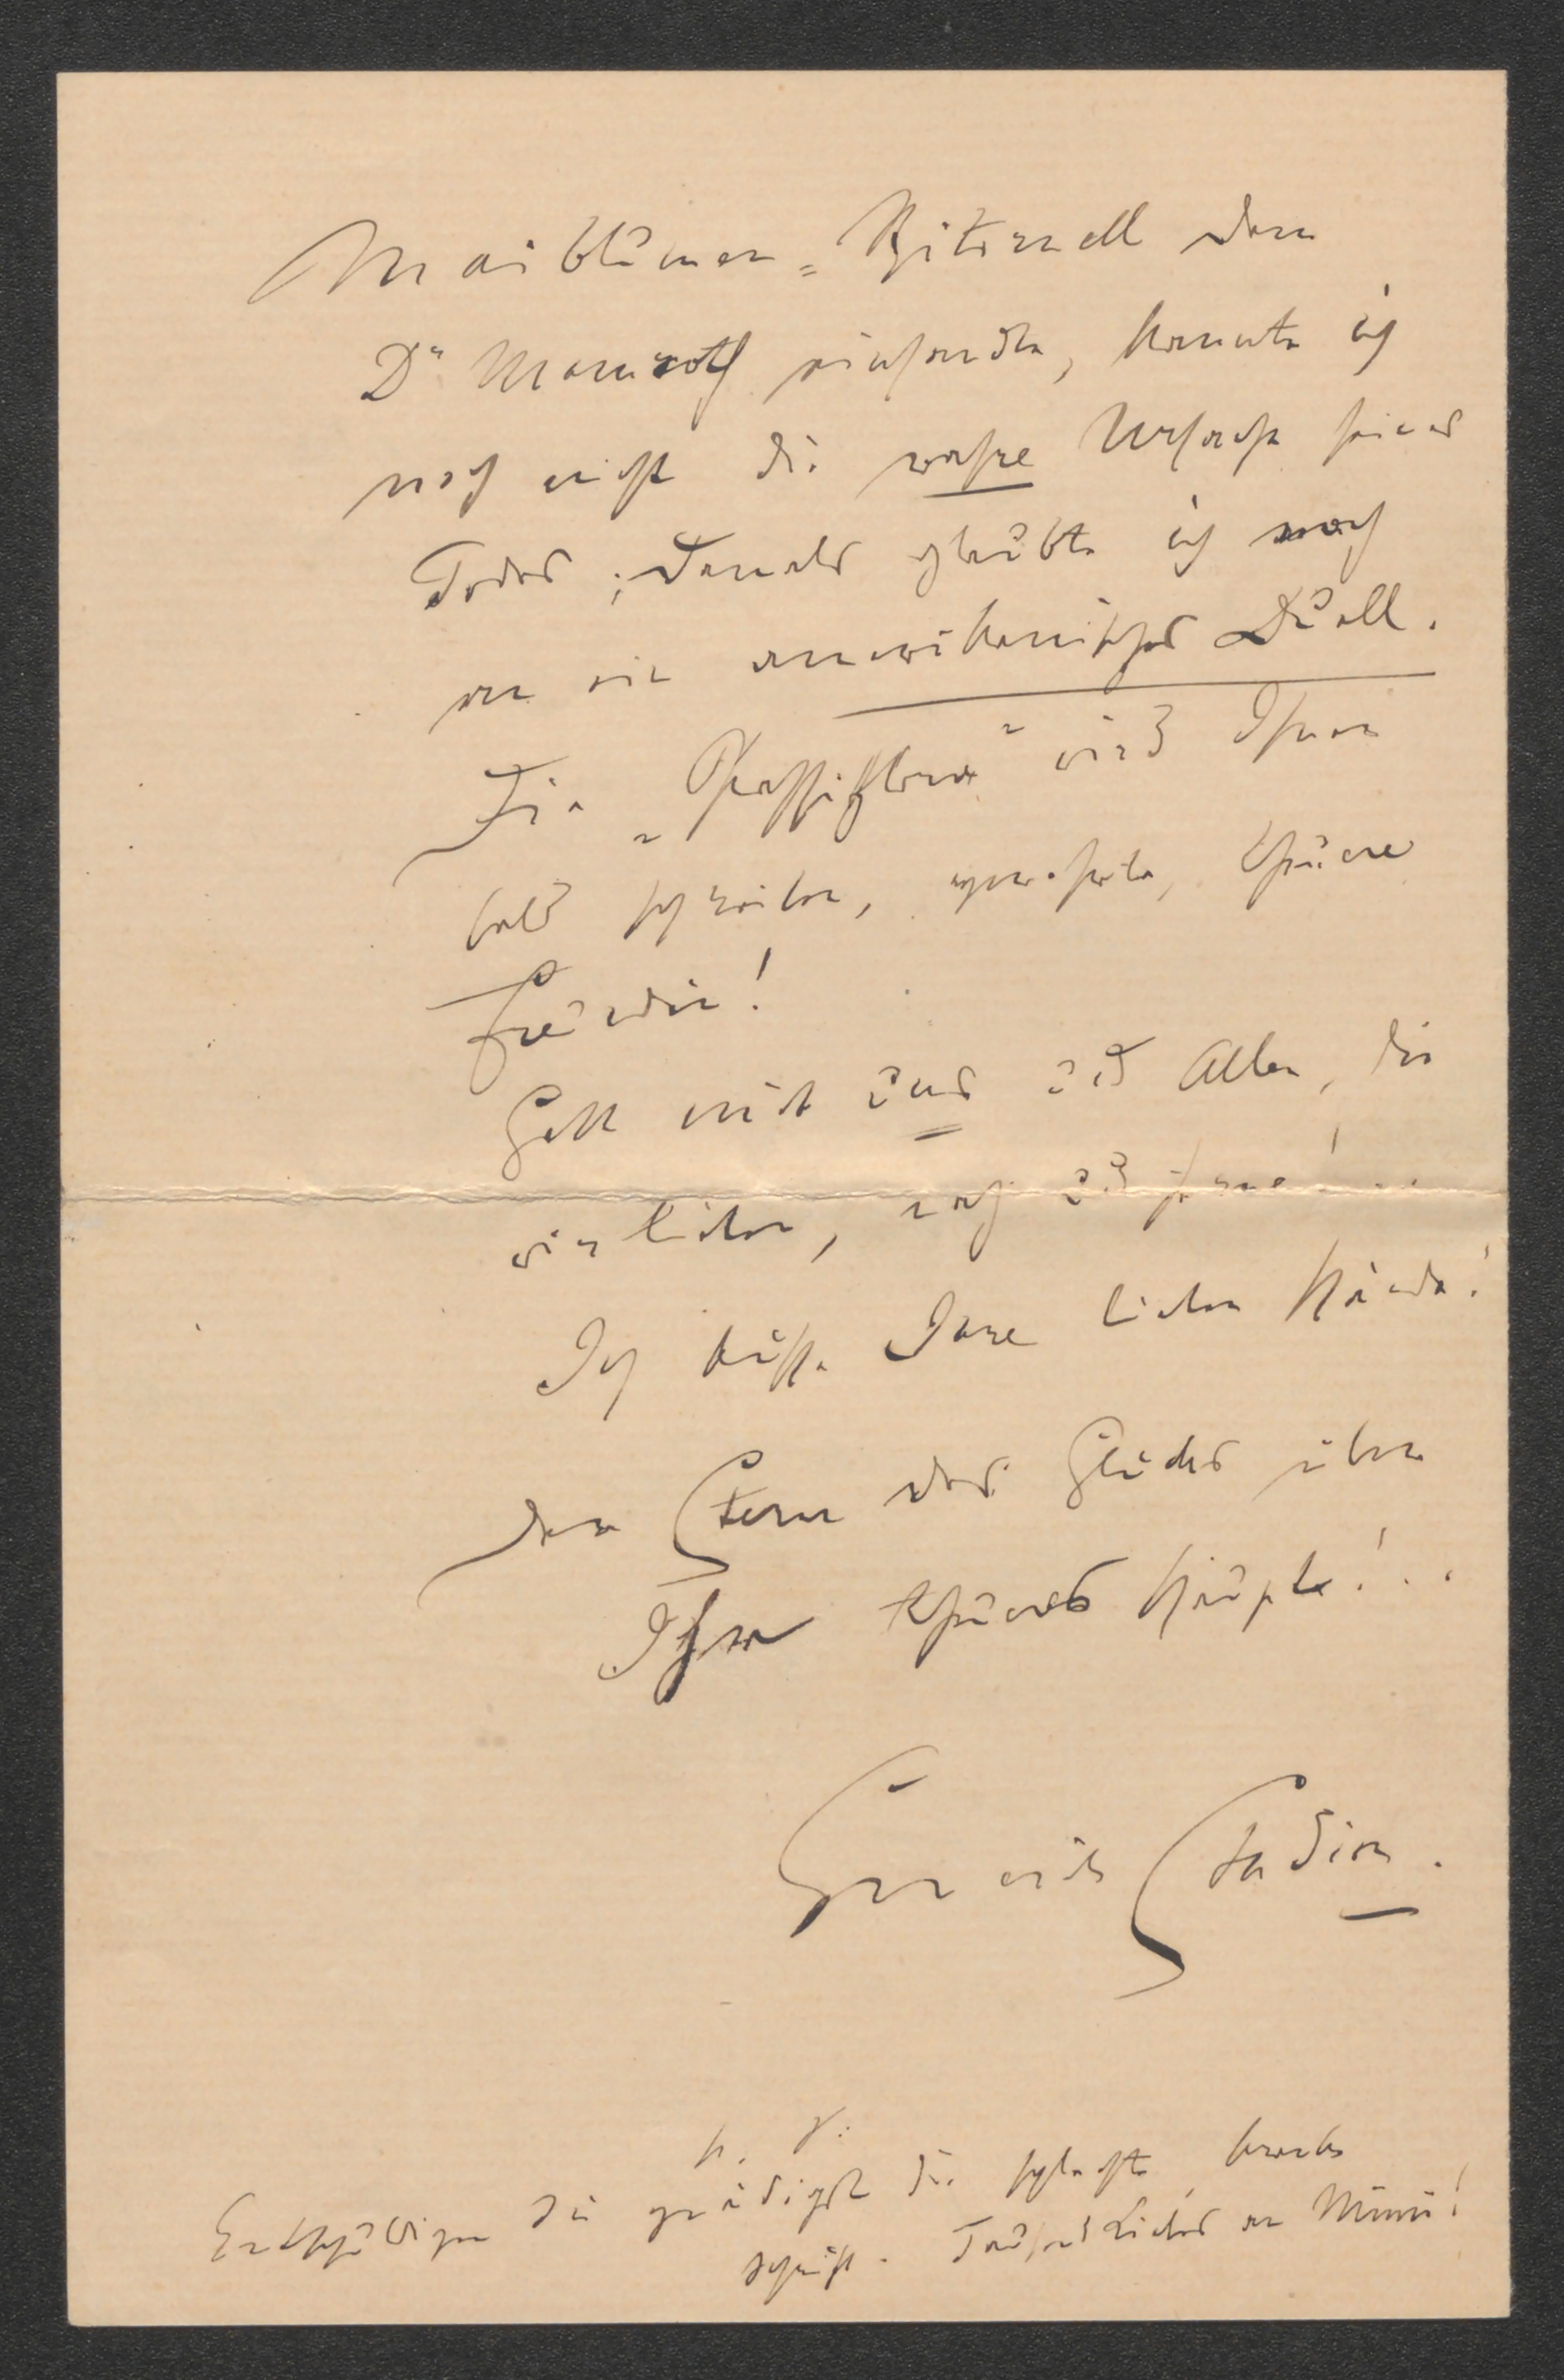 Maiblumen-Ritornell dem
Dr Mamroth einsandte, kannte ich
noch nicht die wahre Ursache seines
Todes; damals glaubte ich noch
an ein amerikanisches Duell.
Die „Passiflora" wird Ihnen
bald schreiben, verehrte, theure
Freundin!
Gott mit uns und Allen, die
wir lieben, nah und ferne! ..
Ich küsse Ihre lieben Hände!
Den Stern des Glückes über
Ihr theures Haupt! ..
Emerich Stadion.
p. s:
Entschuldigen Sie gnädigst die schlechte, kranke
Schrift. Tausend Liebes an Minni!